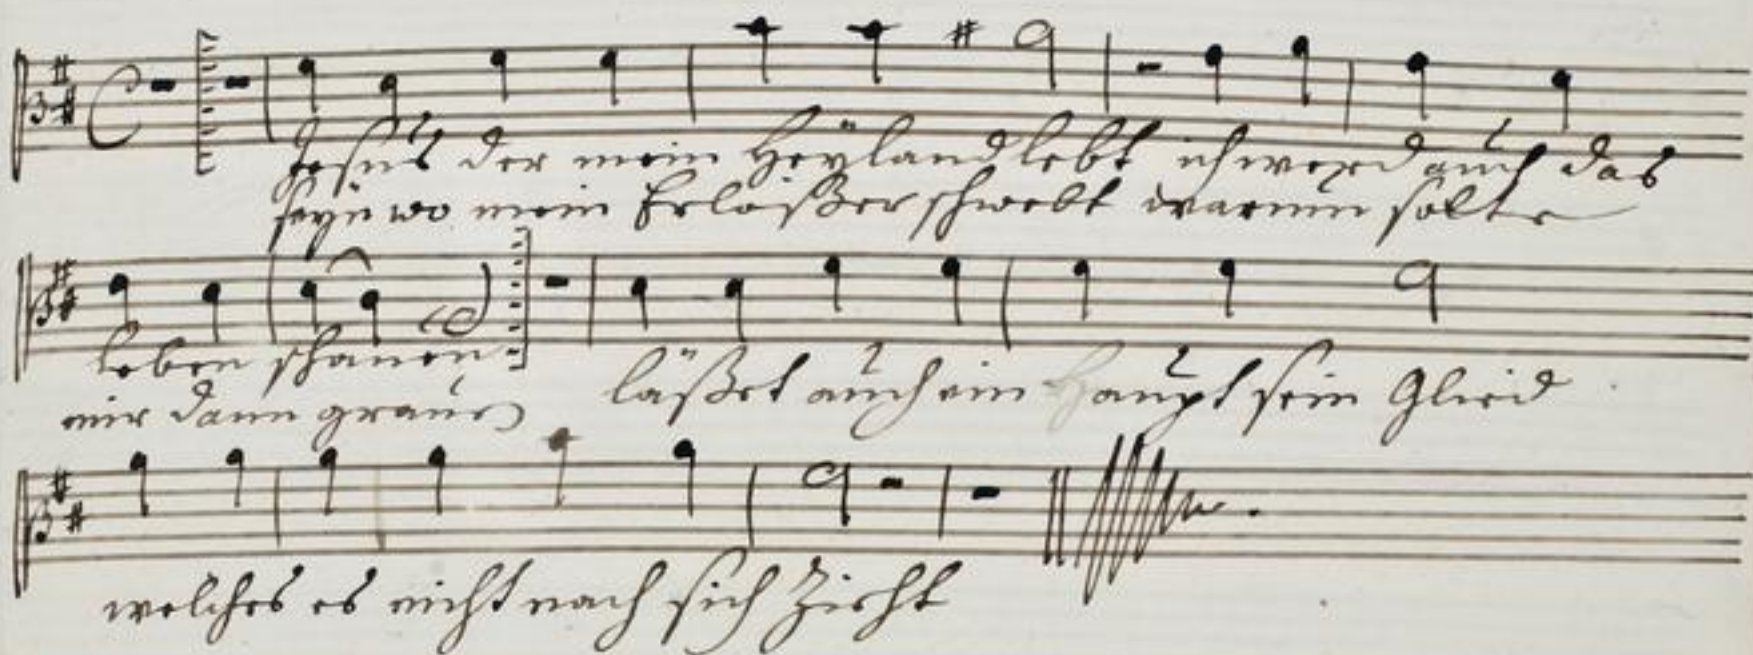 Jesus der mein Heÿland lebt ich werd auch das
seyn wo mein Erlößer schwebt warum solte
leben schauen
mir dann grauen läßet auch ein Haupt sein Glied
welches es nicht nach sich Zieht